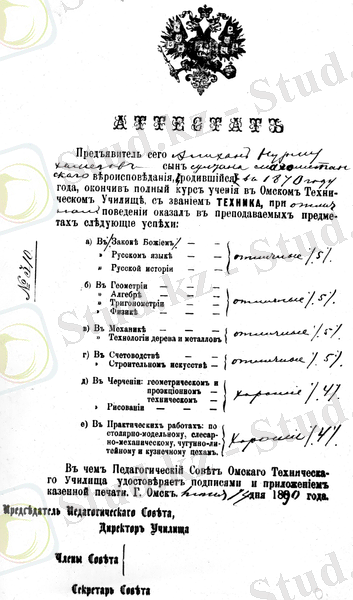 АТТЕСТАТЪ
Предъявитель сего Алиханъ Нурму
хамедовъ сынъ султана магометан
скаго вѣроисповѣданія, (родившійся) въ 1870 году
года, окончивъ полный курсъ ученія въ Омскомъ Техни-
ческомъ Училищѣ, съ званіемъ ТЕХНИКА, при отлич
номъ поведеніи оказалъ въ преподаваемыхъ предме-
тахъ слѣдующіе успѣхи:
№ 310
а) Въ Законѣ Божіемъ — —
» Русскомъ языкѣ — —
» Русской исторіи — —
отличные /5/
б) Въ Геометріи — —
» Алгебрѣ — —
» Тригонометріи — —
» Физикѣ — —
отличные /5/
в) Въ Механикѣ — —
» Технологіи дерева и металловъ
отличные /5/
г) Въ Счетоводствѣ — —
» Строительномъ искусствѣ —
отличные /5/
д) Въ Черченіи: геометрическомъ и
проэкціонномъ —
техническомъ —
» Рисованіи — —
хорошіе /4/
е) Въ Практическихъ работахъ: по
столярно-модельному, слесар-
но-механическому, чугунно-ли-
тейному и кузнечному цехамъ.
хорошіе /4/
Въ чемъ Педагогическій Совѣтъ Омскаго Техническа-
го Училища удостовѣряетъ подписями и приложеніемъ
казенной печати. Г. Омскъ. дня 1890 года.
Предсѣдатель Педагогическаго Совѣта,
Директоръ Училища
Члены Совѣта
Секретарь Совѣта
Stud.kz - Stud.kz
Stud.kz - Stud.kz
Stud.kz - Stud.kz